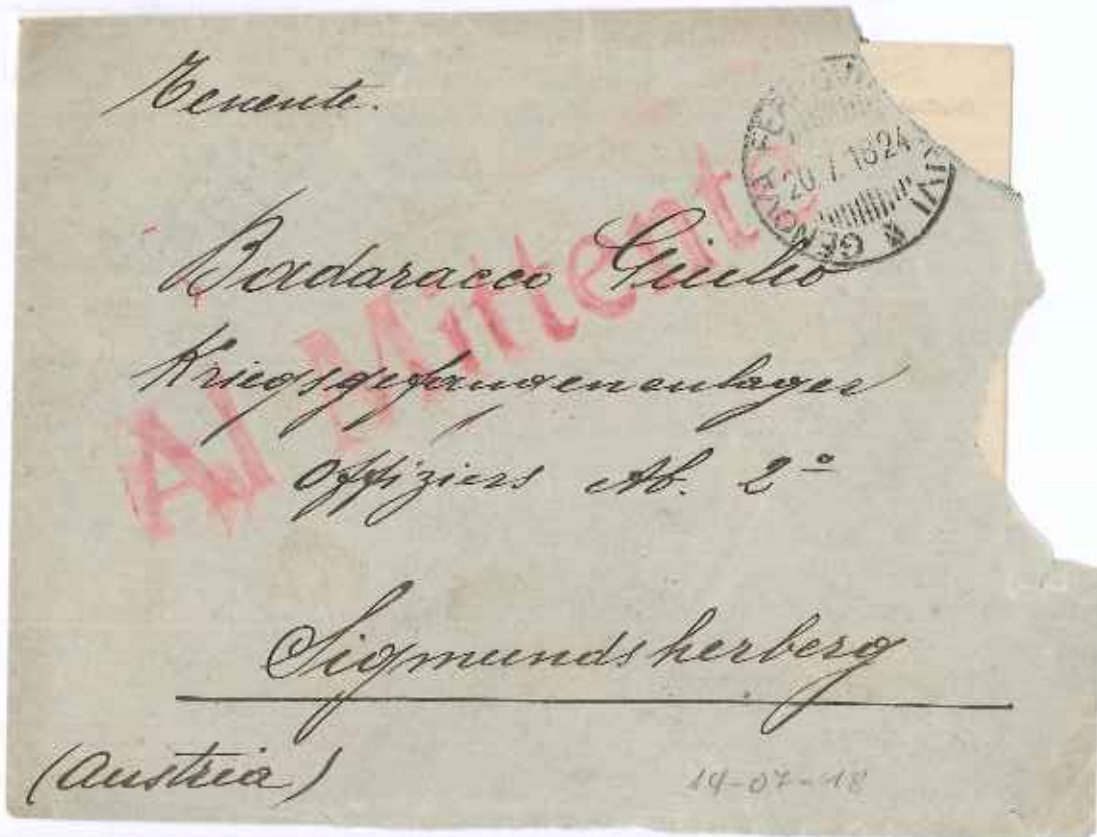 Tenente.
GENOVA FERROVIA
20.7.18 24
Badaracco Giulio
Al Mittente
Kriegsgefangenenlager
Offiziers Ab. 2º
Sigmundsherberg
(Austria)
14-07-18